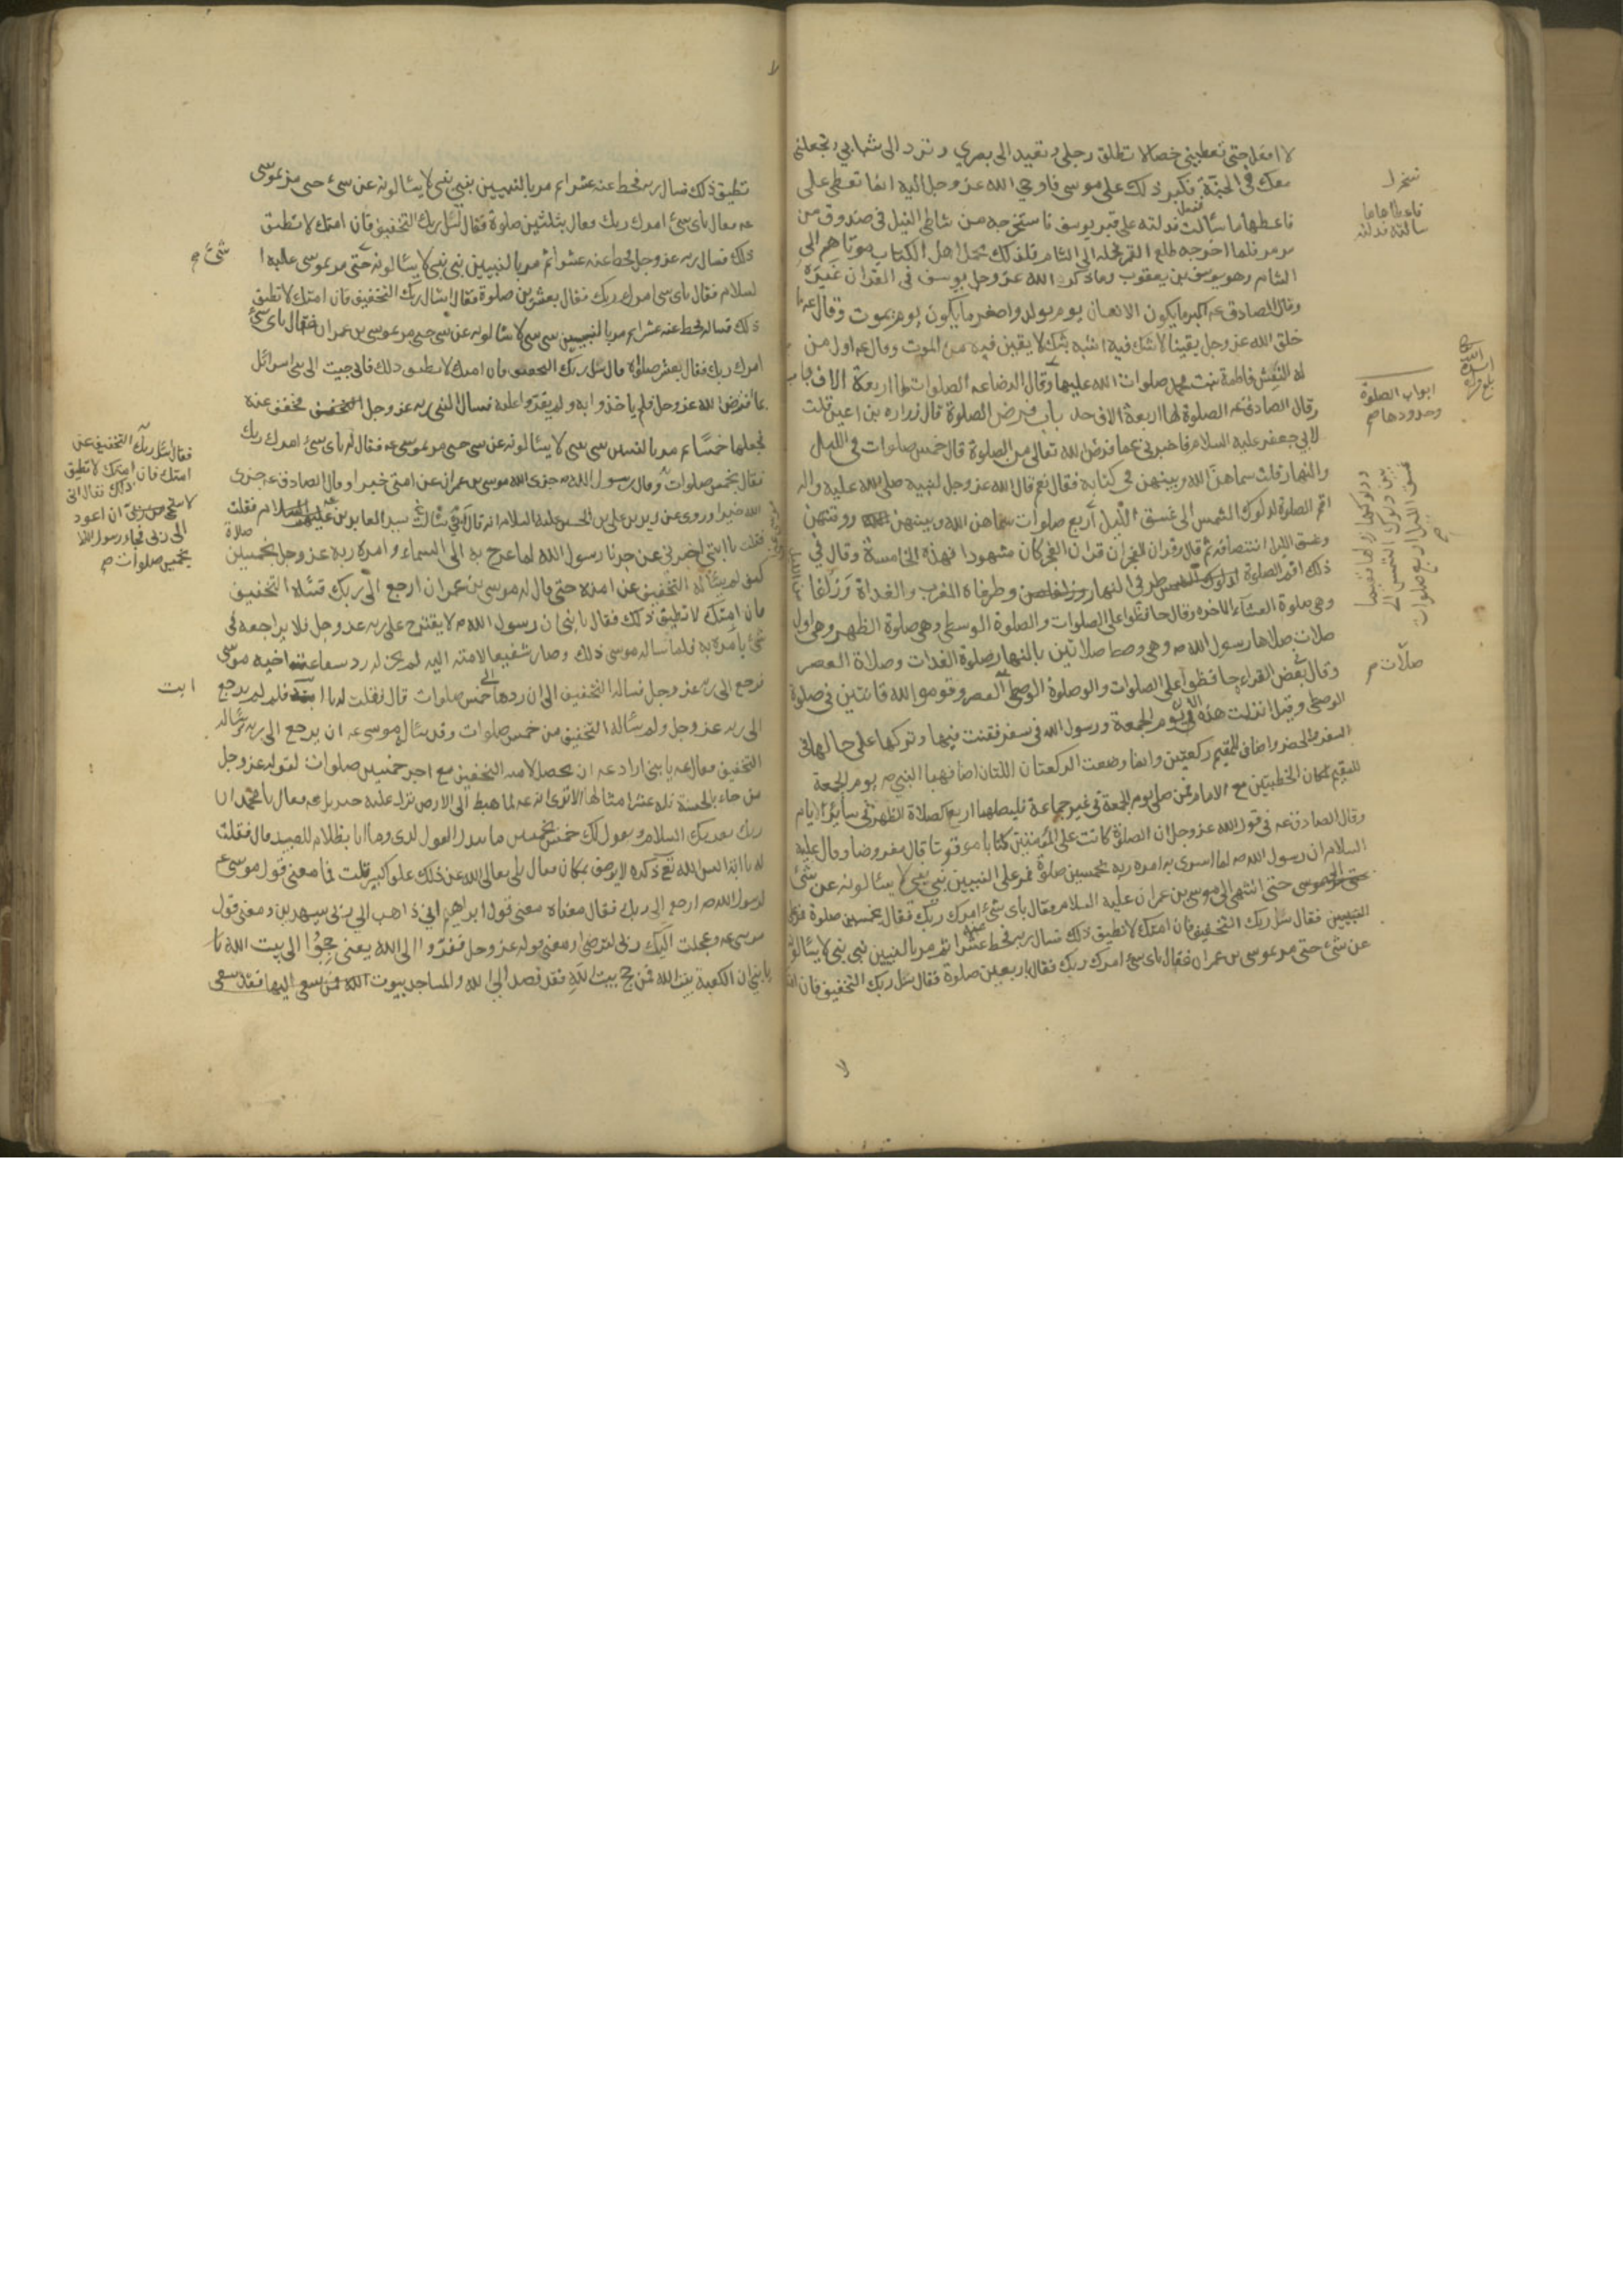 لا افعل حتى تعطيني خصالا تطلق رجلي وتعيد الى بصري وترد الى شبابي وتجعلني
معك في الجنة فكبر ذلك على موسى فاوحى الله عز وجل اليه انما تعطي على
فاعطها ما سألت ففعل فدلته على قبر يوسف فاستخرجه من شاطئ النيل في صندوق من
مرمر فلما اخرجه طلع القمر فحمله الى الشام فلذلك تحمل اهل الكتاب موتاهم الى
الشام وهو يوسف بن يعقوب وما ذكر الله عز وجل يوسف في القران غيره
وقال الصادق عه اكبر ما يكون الانسان يوم يولد واصغر ما يكون يوم يموت وقال عه ما
خلق الله عز وجل يقينا لا شك فيه اشبه بشك لا يقين فيه من الموت وقال عه اول من
له النعش فاطمة بنت محمد صلوات الله عليهما وقال الرضا عه الصلوات لها اربعة الاف باب
وقال الصادق عه الصلوة لها اربعة الاف حد باب فرض الصلوة قال زراره بن اعين قلت
لابي جعفر عليه السلام فاخبرني عما فرض الله تعالى من الصلوة قال خمس صلوات في الليل
والنهار قلت سماهن الله وبينهن في كتابه فقال نعم قال الله عز وجل لنبيه صلى الله عليه واله
اقم الصلوة لدلوك الشمس الى غسق الليل اربع صلوات سماهن الله وبينهن ووقتهن
وغسق الليل انتصافه ثم قال وقران الفجر ان قران الفجر كان مشهودا فهذه الخامسة وقال في
ذلك اقم الصلوة طرفي النهار وطرفاه المغرب والغداة وزلفا
وهي صلوة العشاء الاخره وقال حافظوا على الصلوات والصلوة الوسطى وهي صلوة الظهر وهي اول
صلات صلاها رسول الله ص وهي وسط صلاتين بالنهار صلوة الغدات وصلاة العصر
وقال بعض القراء حافظوا على الصلوات والصلوة الوسطى العصر وقوموا لله قانتين في صلوة
الوسطى وقيل انزلت هذه الاية يوم الجمعة ورسول الله في سفر فقنت فيها وتركها على حالها في
السفر والحضر واضاف للمقيم ركعتين وانما وضعت الركعتان اللتان اضافهما النبي ص يوم الجمعة
للمقيم لمكان الخطبتين مع الامام فمن صلى يوم الجمعة في غير جماعة فليصلها اربعا كصلاة الظهر في سائر الايام
وقال الصادق عه في قول الله عز وجل ان الصلوة كانت على المؤمنين كتابا موقوتا قال مفروضا وقال عليه
السلام ان رسول الله ص لما اسرى به امره ربه بخمسين صلوة فمر على النبيين نبي نبي لا يسألونه عن شئ
حتى انتهى الى موسى بن عمران عليه السلام فقال باى شئ امرك ربك فقال بخمسين صلوة
فقال سل ربك التخفيف فان امتك لا تطيق ذلك فسال ربه فحط عنه عشرا ثم مر بالنبيين نبي نبي لا يسألونه
عن شئ حتى مر بموسى بن عمران فقال باى شئ امرك ربك فقال باربعين صلوة فقال سل ربك التخفيف فان
فاعطاها ما
سالته فدلته
ابواب الصلوة
وحدودها صح
ودلوكها زوالها ففيما
بين دلوك الشمس الى
غسق الليل اربع صلوات
صح
صلات م
تطيق ذلك فسال ربه فحط عنه عشرا ثم مر بالنبيين نبي نبي لا يسألونه عن شئ حتى مر بموسى
عه فقال باى شئ امرك ربك فقال بثلثين صلوة فقال سل ربك التخفيف فان امتك لا تطيق
ذلك فسال ربه عز وجل فحط عنه عشرا ثم مر بالنبيين نبي نبي لا يسألونه حتى مر بموسى عليه ا
لسلام فقال باى شئ امرك ربك فقال بعشرين صلوة فقال اسال ربك التخفيف فان امتك لا تطيق
ذلك فساله فحط عنه عشرا ثم مر بالنبيين نبي نبي لا يسألونه عن شئ حتى مر بموسى بن عمران فقال باى شئ
امرك ربك فقال بعشر صلوة قال سل ربك التخفيف فان امتك لا تطيق ذلك فانى جيت الى بنى اسرائل
بما فرض الله عز وجل فلم ياخذوا به ولم يقروا عليه فسال النبى ربه عز وجل التخفيف فخفف عنه
فجعلها خمسا ثم مر بالنبيين نبي نبي لا يسألونه عن شئ حتى مر بموسى عه فقال له باى شئ امرك ربك
فقال بخمس صلوات وقال رسول الله ص جزى الله موسى بن عمران عن امتى خيرا وقال الصادق عه جزى
الله خيرا وروى عن زيد بن على بن الحسين عليه السلام انه قال سالت ابى سيد العابدين عليه السلام فقلت
فقلت يا ابتى اخبرنى عن جدنا رسول الله لما عرج به الى السماء وامره ربه عز وجل بخمسين صلاة
كيف لم يسأله التخفيف عن امته حتى قال له موسى بن عمران ارجع الى ربك فسله التخفيف
فان امتك لا تطيق ذلك فقال يا بنى ان رسول الله ص لا يقترح على ربه عز وجل فلا يراجعه فى
شئ يامره به فلما ساله موسى ذلك وصار شفيعا لامته اليه لم يجز له رد شفاعة اخيه موسى
فرجع الى ربه عز وجل فساله التخفيف الى ان ردها الى خمس صلوات قال فقلت له يا ابت فلم لم يرجع
الى ربه عز وجل ولم يساله التخفيف من خمس صلوات وقد ساله موسى عه ان يرجع الى ربه ويساله
التخفيف فقال عه يا بنى اراد عه ان يحصل لامته التخفيف مع اجر خمسين صلوات لقوله عز وجل
من جاء بالحسنة فله عشر امثالها الا ترى انه عه لما هبط الى الارض نزل عليه جبريل عه فقال يا محمد ان
ربك يقريك السلام ويقول لك خمس بخمسين ما يبدل القول لدى وما انا بظلام للعبيد قال فقلت
له يا ابة اليس الله تع ذكره لا يوصف بمكان فقال بلى تعالى الله عن ذلك علوا كبيرا قلت فما معنى قول موسى ع
لرسول الله ص ارجع الى ربك فقال معناه معنى قول ابراهيم انى ذاهب الى ربى سيهدين ومعنى قول
موسى عه وعجلت اليك ربى لترضى ومعنى قوله عز وجل ففروا الى الله يعنى حجوا الى بيت الله يا
يا بنى ان الكعبة بيت الله فمن حج بيت الله فقد قصد الى الله والمساجد بيوت الله فمن سعى اليها فقد سعى
شئ م
فقال سل ربك التخفيف عن
امتك فان امتك لا تطيق
ذلك فقال انى
لاستحى من ربى ان اعود
الى ربى فجاء رسول الله
بخمس صلوات صح
ابت